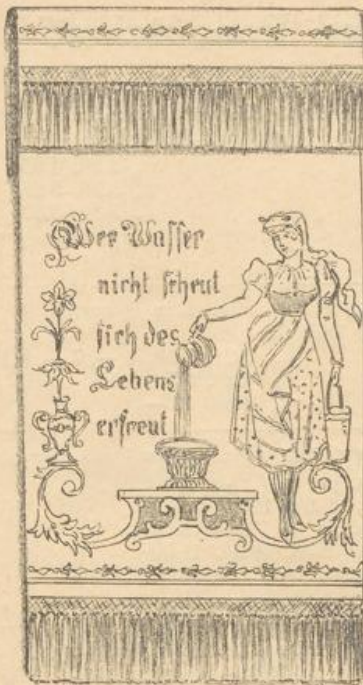 Wer Wasser
nicht scheut
sich des
Lebens
erfreut